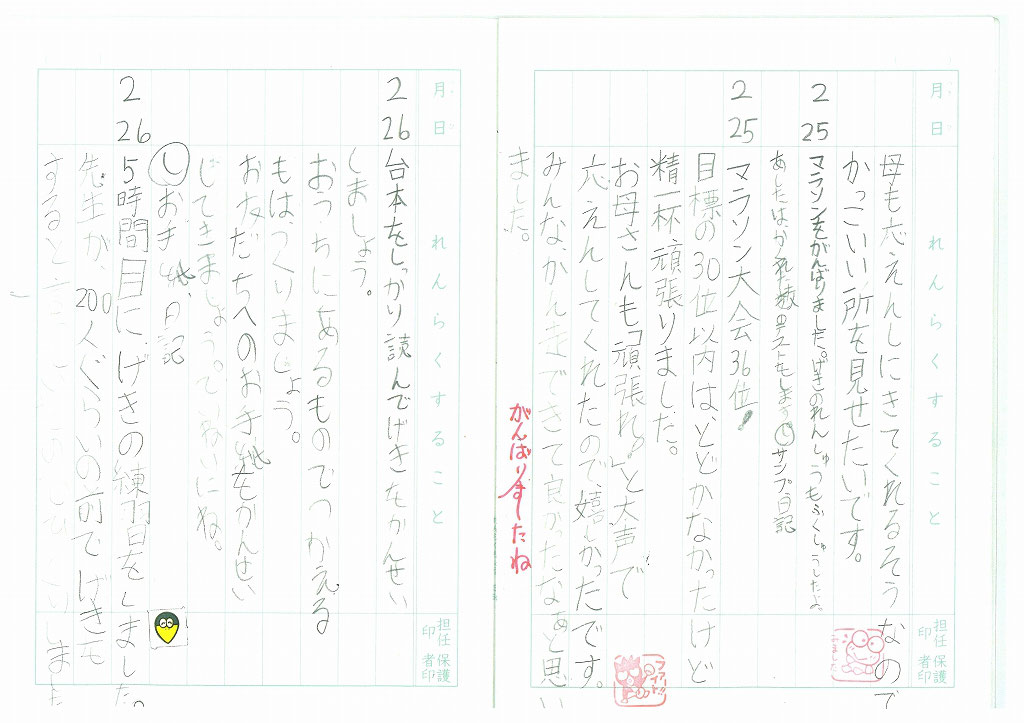 月日
れんらくすること
担任印
保護者印
母も応えんしにきてくれるそうなので
かっこいい所を見せたいです。
2 25
マラソンをがんばりました。げきのれんしゅうもふくしゅうしたよ。
サンプ、日記
2 25
マラソン大会36位!
目標の30位以内は、とどかなかったけど
精一杯、頑張りました。
お母さんも「頑張れ」と大声で
応えんしてくれたので、嬉しかったです。
みんな、かん走できて良かったなぁと思い
ました。
がんばりましたね
ファイト!!
みました
月日
れんらくすること
担任印
保護者印
2 26
台本をしっかり読んでげきをかんせい
しましょう。
おうちにあるものでつかえる
もは、つくりましょう。
お友だちへのお手紙をかんせい
じてきましょう。ていねいにね。
し お手紙、日記
2 26
5時間目に、げきの練習をしました。
先生が、200人ぐらいの前でげきを
すると言